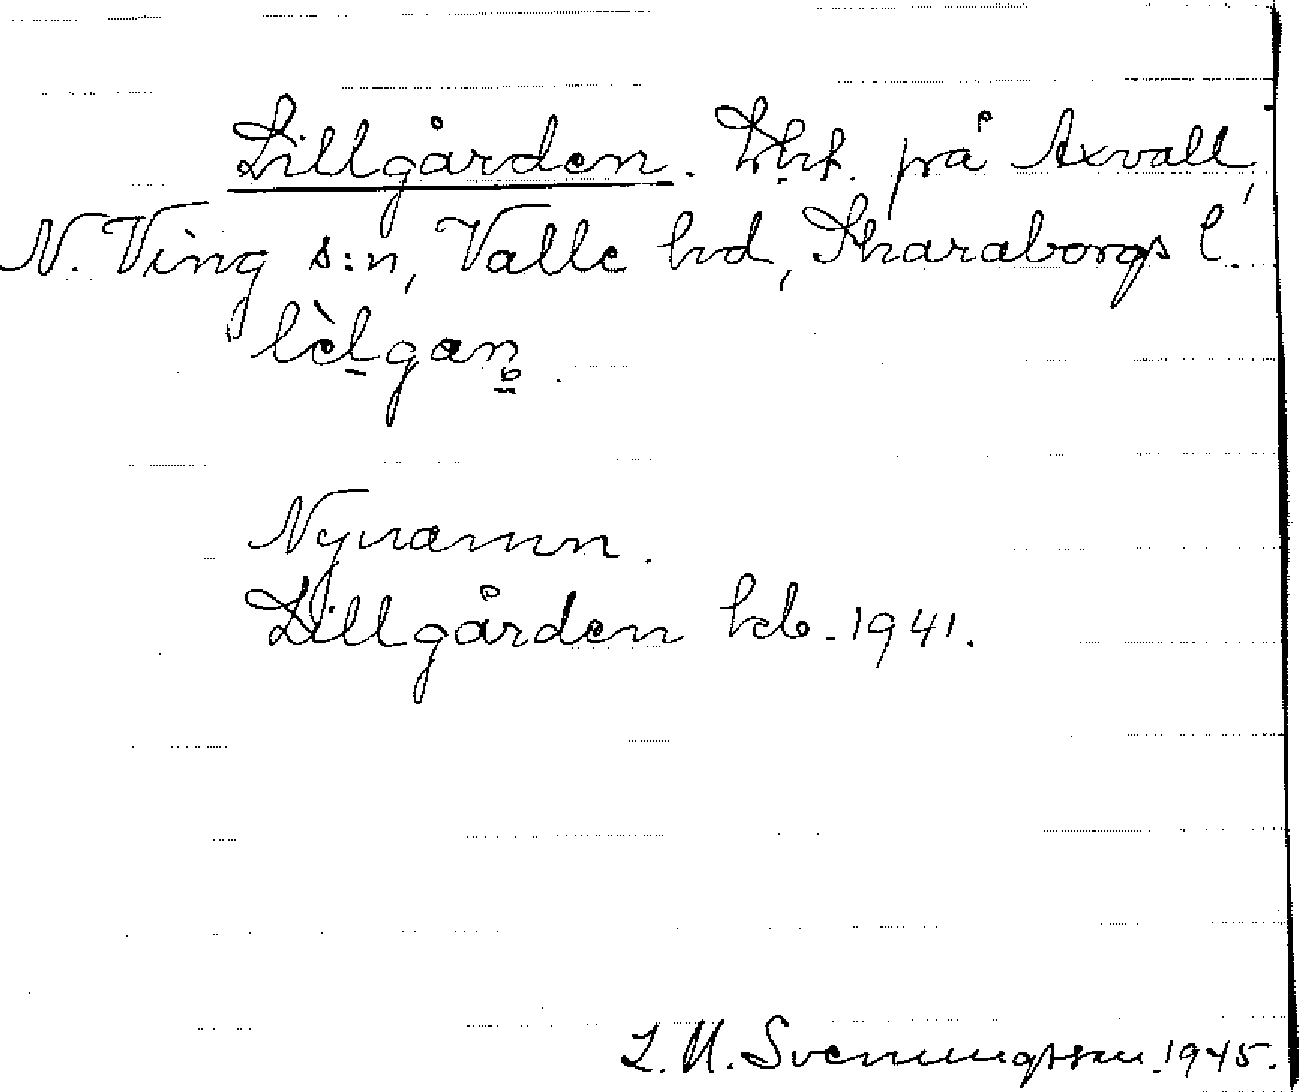 Lillgården. Lht. på Axvall,
N. Ving s:n, Valle hd, Skaraborgs l.
lèlgan
Nynamn.
Lillgården kb. 1941.
L. M. Svenungsson. 1945.